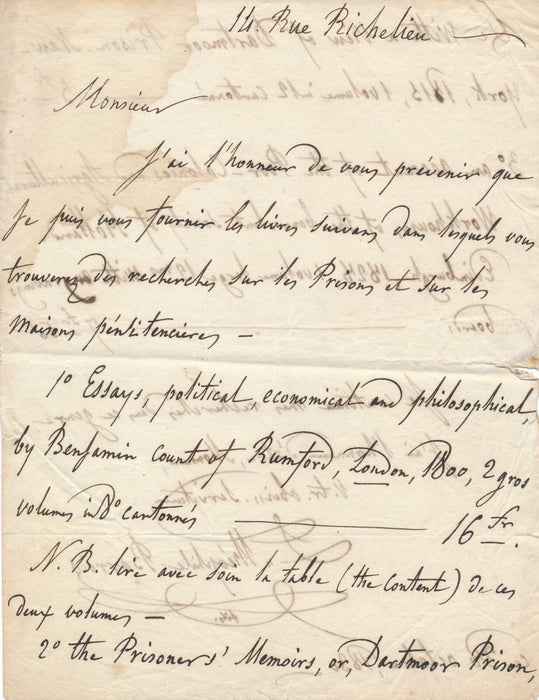 14. Rue Richelieu —
Monsieur
J'ai l'honneur de vous prévenir que
Je puis vous fournir les livres suivans dans lesquels vous
trouverez des recherches sur les Prisons et sur les
maisons pénitencières —
1o Essays, political, economical and philosophical,
by Benjamin count of Rumford, London, 1800, 2 gros
volumes in 8o cartonnés — 16 fr.
N. B. lire avec soin la table (the content) de ces
deux volumes —
2o the Prisoners' Memoirs, or, Dartmoor Prison,